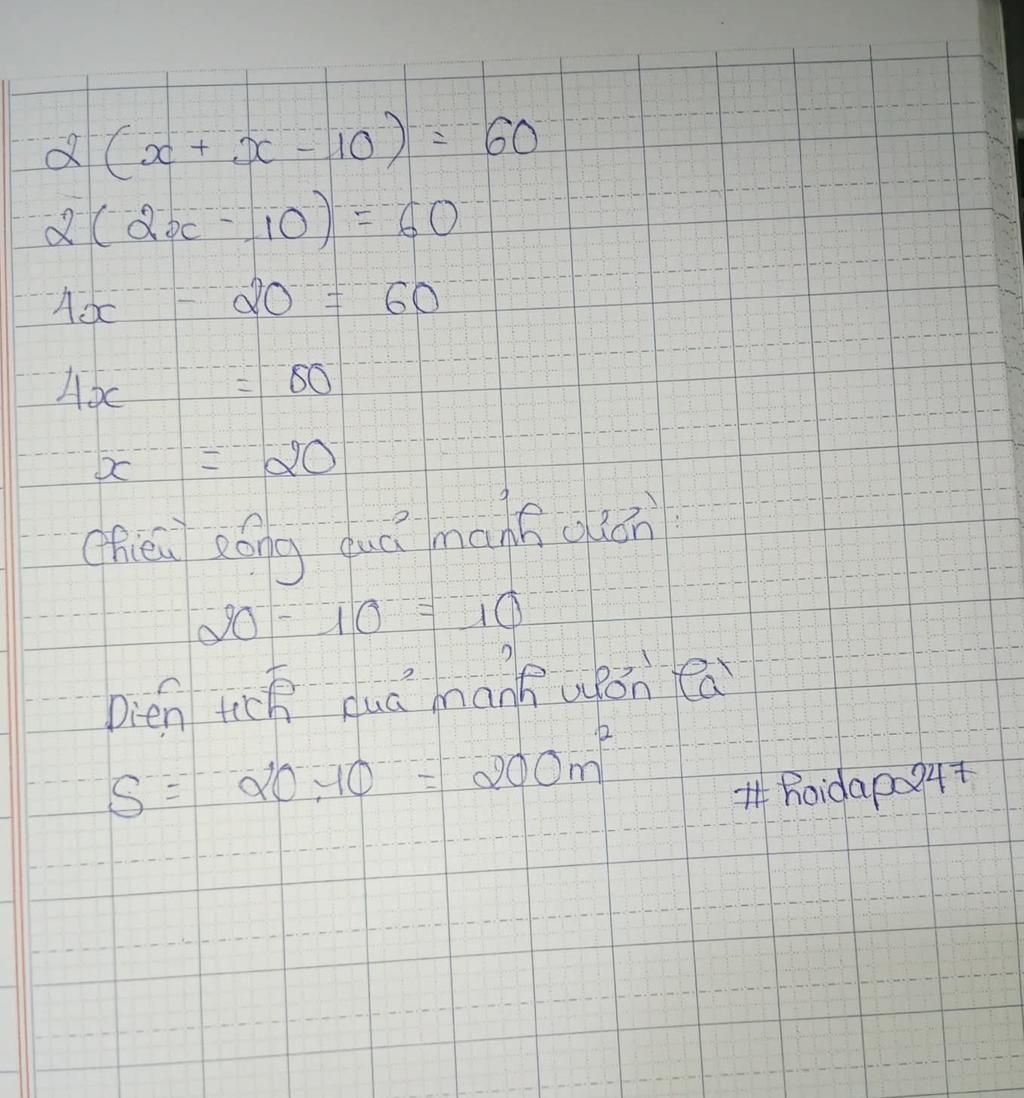 2(x + x - 10) = 60
2(2x - 10) = 60
4x - 20 = 60
4x = 80
x = 20
Chiều rộng quả mảnh vườn:
20 - 10 = 10
Diện tích quả mảnh vườn là
S = 20.10 = 200m²
#hoidap247